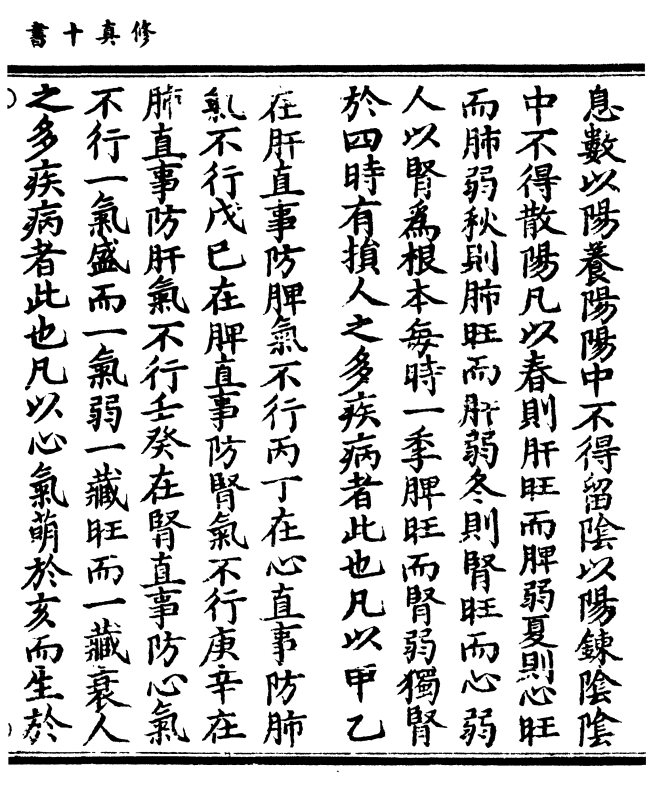 修真十書
息數以陽養陽陽中不得留陰以陽鍊陰陰
中不得散陽凡以春則肝旺而脾弱夏則心旺
而肺弱秋則肺旺而肝弱冬則腎旺而心弱
人以腎為根本每時一季脾旺而腎弱獨腎
於四時有損人之多疾病者此也凡以甲乙
在肝直事防脾氣不行丙丁在心直事防肺
氣不行戊巳在脾直事防腎氣不行庚辛在
肺直事防肝氣不行壬癸在腎直事防心氣
不行一氣盛而一氣弱一藏旺而一藏衰人
之多疾病者此也凡以心氣萌於亥而生於